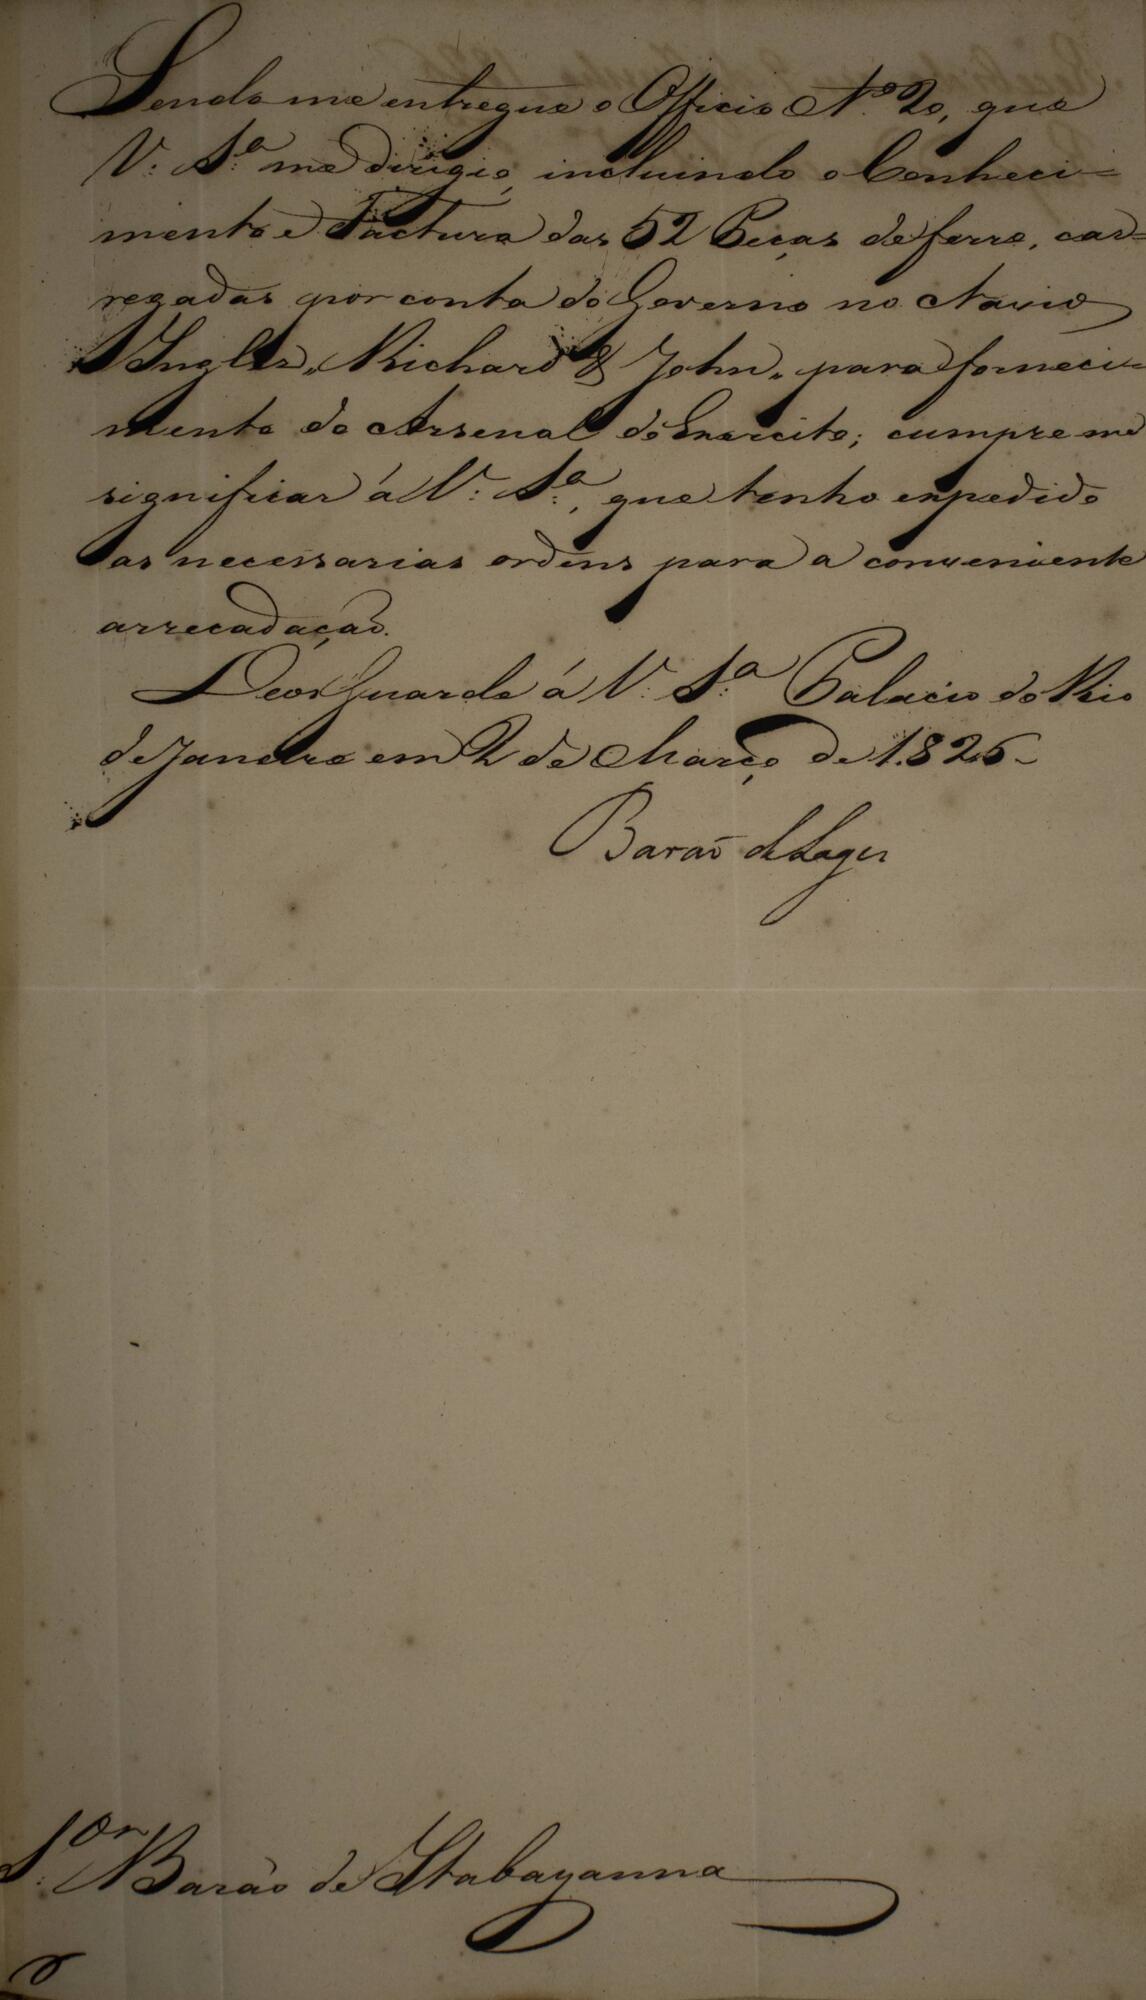 Sendo me entregue o Officio N.º 20, que
V: S:ª me dirigio, incluindo o Conheci-
mento e Factura das 52 Peças de ferro, car-
regadas por conta do Governo no Navio
Inglez „Richard & John„ para forneci-
mento do Arsenal do Exercito; cumpre me
significar á V: S:ª, que tenho expedido
as necessarias ordens para a conveniente
arrecadação.
Deos Guarde á V: S:ª Palacio do Rio
de Janeiro em 2 de Março de 1.826-
Barão de Lages
S:or Barão de Itabayanna